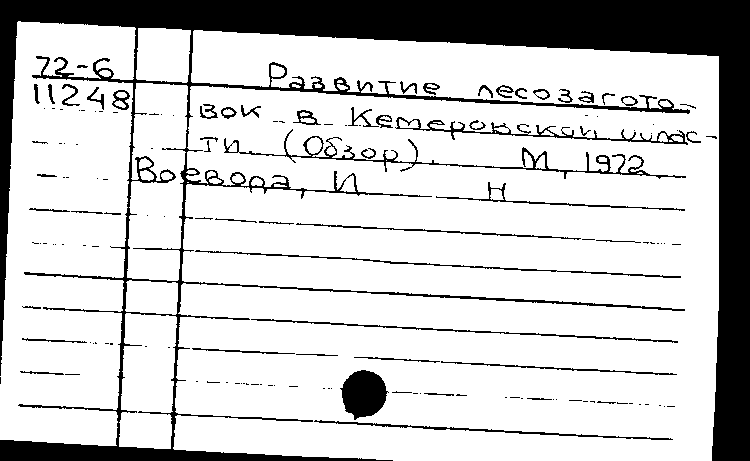 72-6 Развитие лесозагото-
11248 вок в Кемеровской облас-
ти. (Обзор). М., 1972.
Воевода, И Н